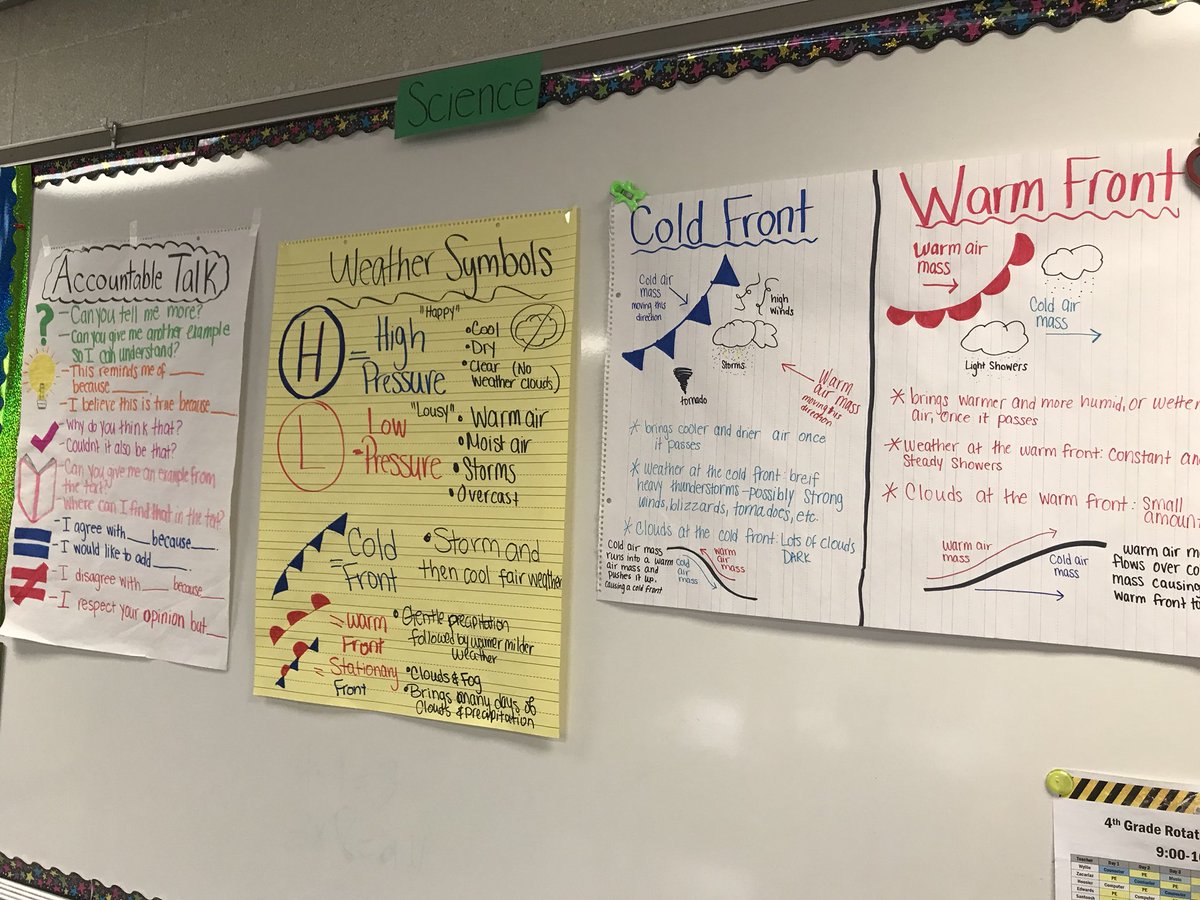 Science
Accountable Talk
?
-Can you tell me more?
-Can you give me another example
so I can understand?
-This reminds me of ____
because ____
-I believe this is true because ____
-Why do you think that?
-Couldn't it also be that?
-Can you give me an example from
the text?
-Where can I find that in the text?
-I agree with ___ because ___.
-I would like to add ____
-I disagree with ____ because ____
-I respect your opinion but ___
Weather Symbols
H = High
Pressure
"Happy"
•Cool
•Dry
•Clear (No
weather clouds)
L - Low
Pressure
"Lousy"
•Warm air
•Moist air
•Storms
•Overcast
= Cold
Front
•Storm and
then cool fair weather
= Warm
Front
•Gentle precipitation
followed by warmer milder
weather
= Stationary
Front
•Clouds & Fog
•Brings many days of
Clouds & Precipitation
Cold Front
Cold air
mass
moving this
direction
high
winds
Storms
tornado
Warm
air mass
moving this
direction
* brings cooler and drier air once
it passes
* Weather at the cold front: breif
heavy thunderstorms - possibly strong
winds, blizzards, tornadoes, etc.
* Clouds at the cold front: Lots of clouds
DARK
Cold air mass
runs into a warm
air mass and
pushes it up.
causing a cold front
Cold
air
mass
warm
air
mass
Warm Front
Warm air
mass
Cold air
mass
Light Showers
* brings warmer and more humid, or wetter
air, once it passes
* Weather at the warm front: Constant
Steady Showers
* Clouds at the warm front: Small
Warm air
mass
Cold air
mass
warm air
flows over
mass causing
warm front to
4th Grade
9:00-
Teacher Day 1 Day 2 Day 3
Wyllie Counselor PE Music
Zacarias PE Counselor
Hoosier Computer PE
Edwards PE Computer